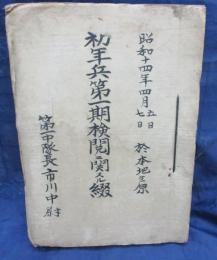 昭和十四年四月五日
七日
於本地ヶ原
初年兵第一期検閲ニ関スル綴
第一中隊長市川中尉